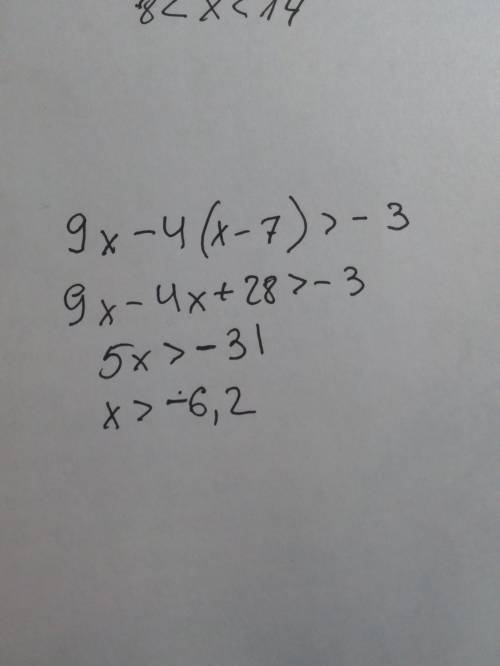 8 < x < 14
9x - 4(x - 7) > - 3
9x - 4x + 28 > - 3
5x > - 31
x > - 6,2